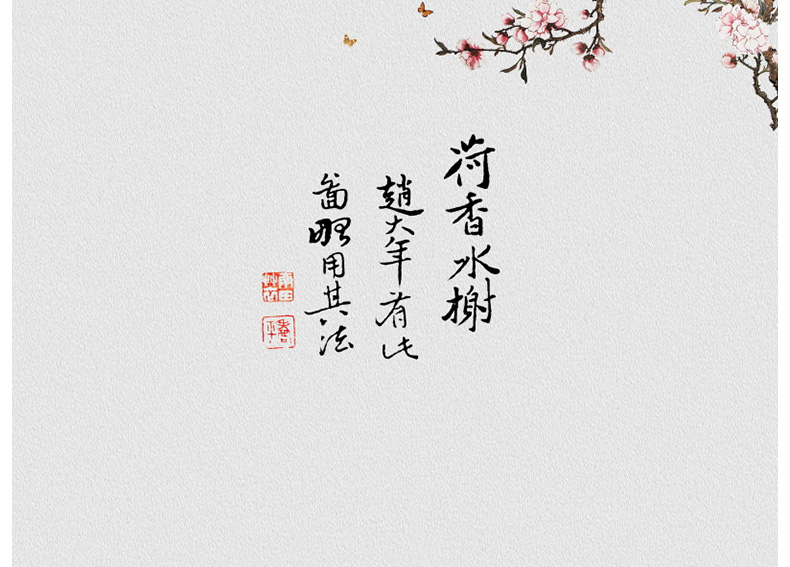 荷香水榭
趙大年有此
啚略用其法